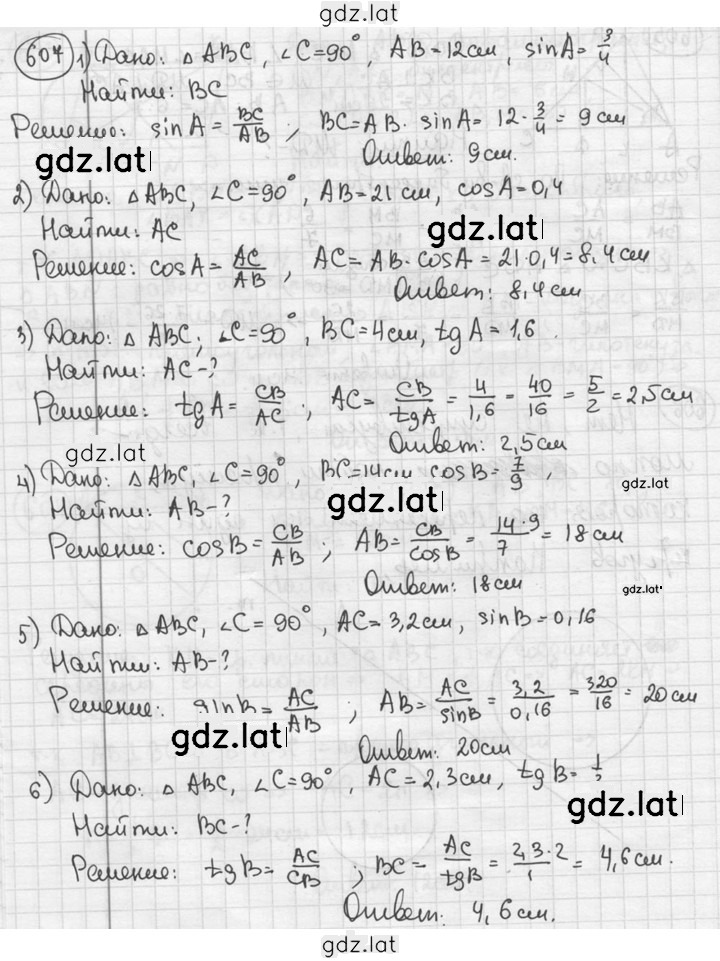 gdz.lat
607 1) Дано: △ ABC, ∠C=90°, AB=12см, sinA=3/4
Найти: BC
Решение: sinA=BC/AB; BC=AB·sinA=12·3/4=9см
Ответ: 9см.
gdz.lat
2) Дано: △ABC, ∠C=90°, AB=21см, cosA=0,4
Найти: AC
gdz.lat
Решение: cosA=AC/AB, AC=AB·cosA=21·0,4=8,4см
Ответ: 8,4см
3) Дано: △ ABC; ∠C=90°, BC=4см, tgA=1,6.
Найти: AC-?
Решение: tgA=CB/AC; AC=CB/tgA=4/1,6=40/16=5/2=2,5см
Ответ: 2,5см
gdz.lat
4) Дано: △ABC, ∠C=90°, BC=14см cosB=7/9,
Найти: AB-?
gdz.lat
gdz.lat
Решение: cosB=CB/AB; AB=CB/cosB=14·9/7=18см
Ответ: 18см
gdz.lat
5) Дано: △ABC, ∠C=90°, AC=3,2см, sinB=0,16
Найти: AB-?
Решение: sinB=AC/AB; AB=AC/sinB=3,2/0,16=320/16=20см
gdz.lat
Ответ: 20см
6) Дано: △ABC, ∠C=90°, AC=2,3см, tgB=
gdz.lat
Найти: BC-?
Решение: tgB=AC/CB; BC=AC/tgB=2,3·2/1=4,6см.
Ответ: 4,6см.
gdz.lat